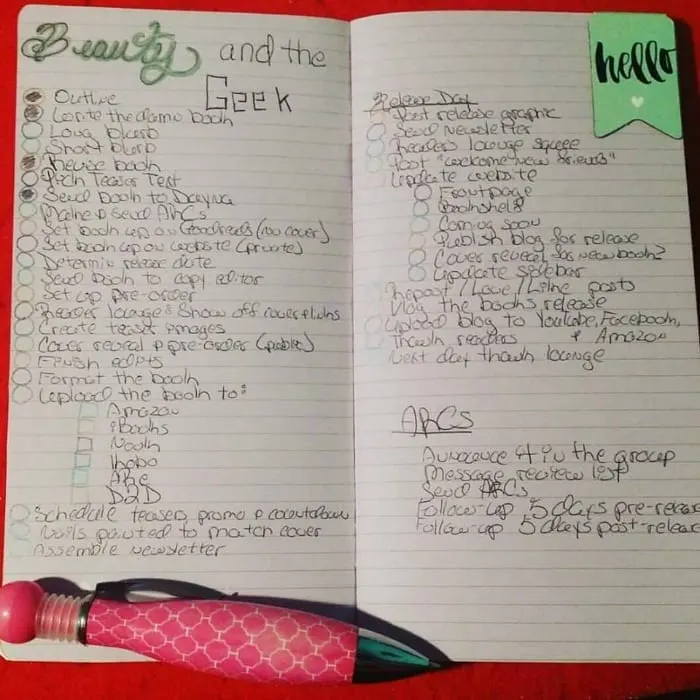 Beauty and the
Geek
Outline
Write the damn book
Long blurb
Short blurb
Revise book
Pick Teaser Text
Send book to Dayna
Make & send ARCs
Set book up on Goodreads (no cover)
Set book up on website (private)
Determin release date
Send book to copy editor
Set up pre-order
Reader lounge: Show off cover &
Create teaser images
Cover reveal & pre-order (public)
Finish edits
Format the book
Upload the book to:
Amazon
iBooks
Nook
Kobo
ARe
D2D
Schedule teasers, promo & countdown
Nails painted to match cover
Assemble newsletter
hello
Release Day
Post release graphic
Send Newsletter
Readers lounge squee
Post "welcome new friends"
Update website
Frontpage
Bookshelf
Coming soon
Publish blog for release
Cover reveal for new book?
Update sidebar
Repost/Love/Like posts
Vlog the books release
Upload blog to YouTube, Facebook,
Thank readers & Amazon
Next day thank lounge
ARCs
Announce 4 in the group
Message review list
Send ARCs
Follow-up 5 days pre-release
Follow-up 5 days post-release